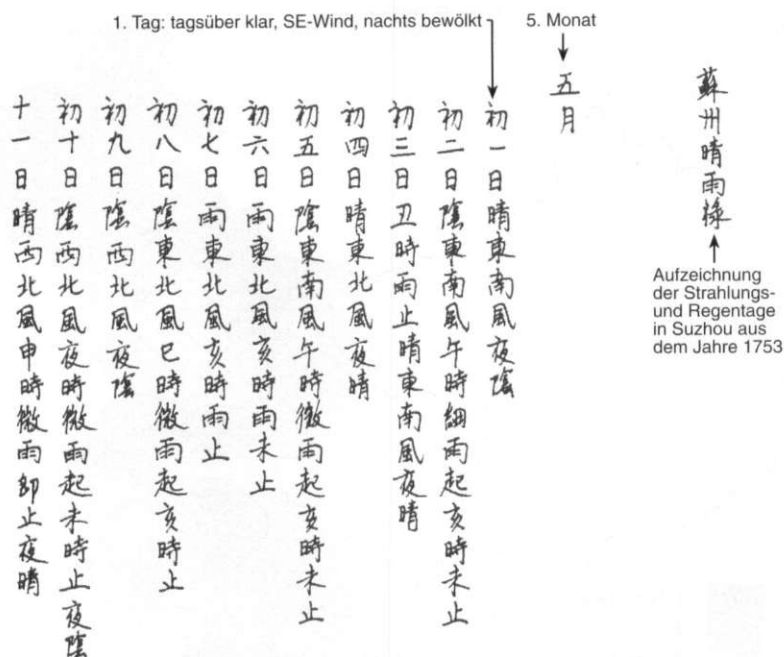 1. Tag: tagsüber klar, SE-Wind, nachts bewölkt
5. Monat
蘇州晴雨祿
Aufzeichnung
der Strahlungs-
und Regentage
in Suzhou aus
dem Jahre 1753
五月
初一日晴東南風夜陰
初二日陰東南風午時細雨起亥時未止
初三日丑時雨止晴東南風夜晴
初四日晴東北風夜晴
初五日陰東南風午時微雨起亥時未止
初六日雨東北風亥時雨未止
初七日雨東北風亥時雨止
初八日陰東北風巳時微雨起亥時止
初九日陰西北風夜陰
初十日陰西北風夜時微雨起未時止夜陰
十一日晴西北風申時微雨即止夜晴